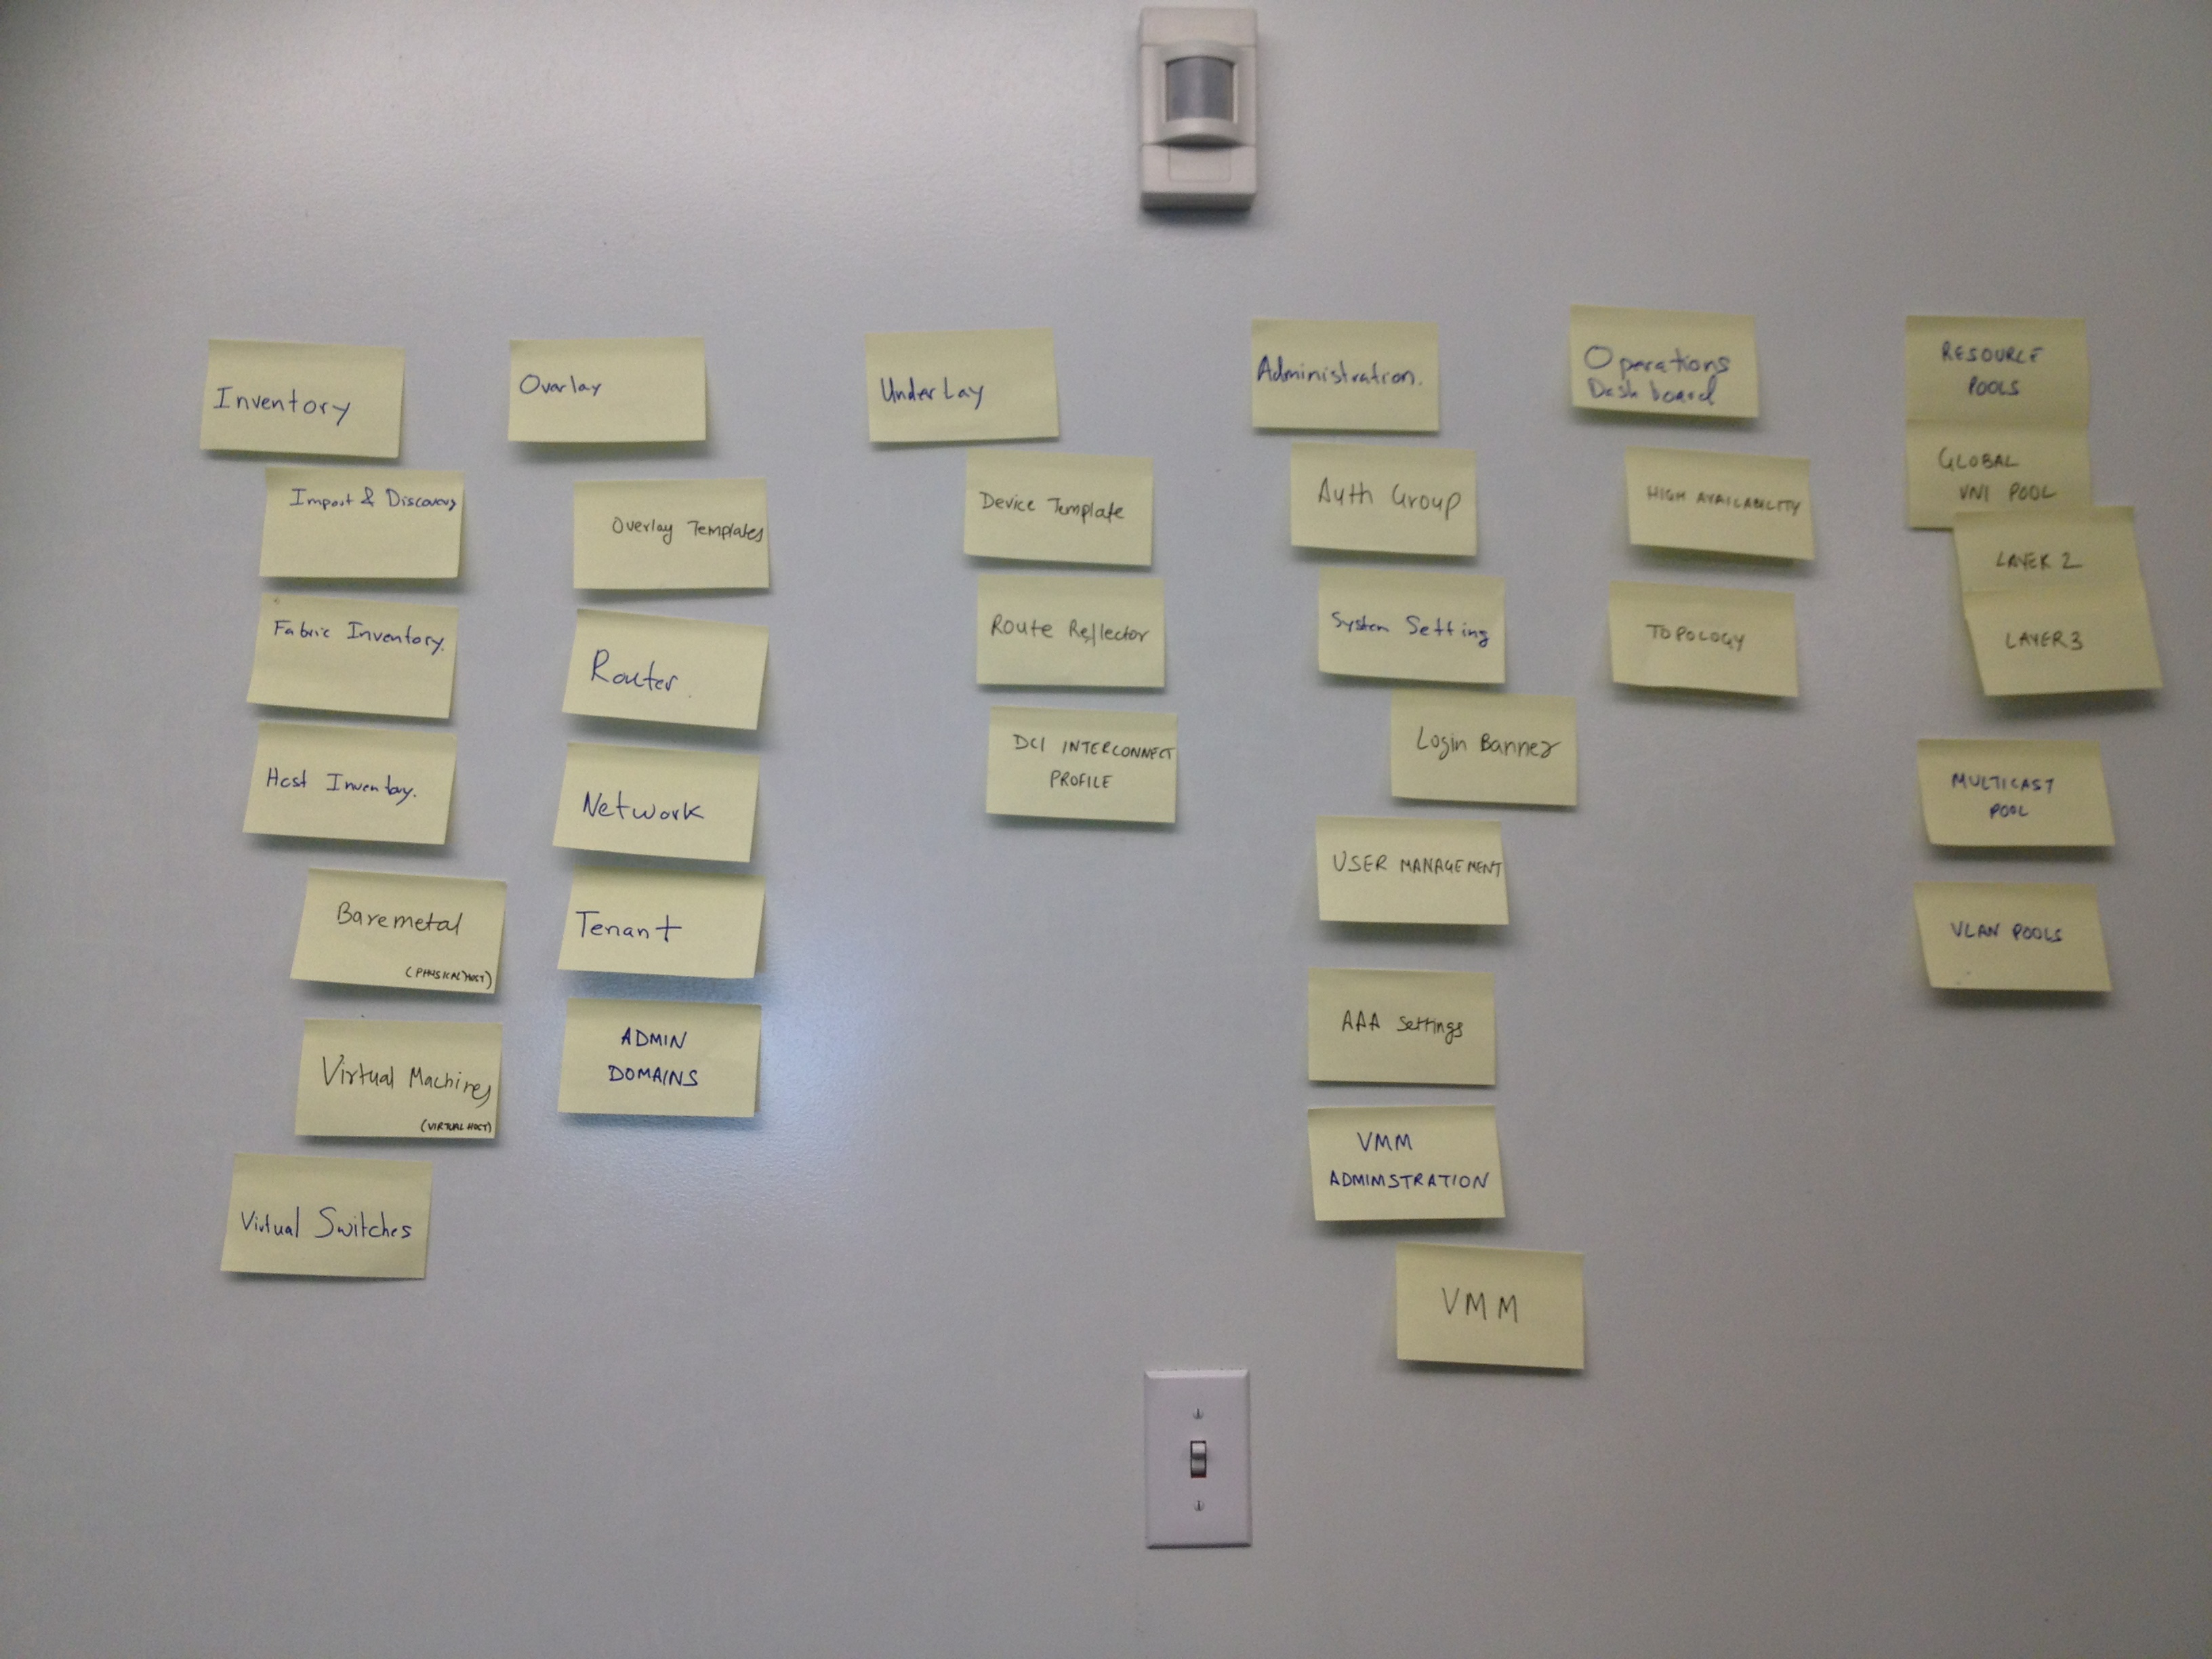 Inventory
Import & Discovery
Fabric Inventory.
Host Inventory.
Baremetal
(PHYSICAL HOST)
Virtual Machines
(VIRTUAL HOST)
Virtual Switches
Overlay
Overlay Templates
Router.
Network
Tenant
ADMIN
DOMAINS
Underlay
Device Template
Route Reflector
DCI INTERCONNECT
PROFILE
Administration.
Auth Group
System Setting
Login Banner
USER MANAGEMENT
AAA Settings
VMM
ADMIMSTRATION
VMM
Operations
Dashboard
HIGH AVAILABILITY
TOPOLOGY
RESOURCE
POOLS
GLOBAL
VNI POOL
LAYER 2
LAYER 3
MULTICAST
POOL
VLAN POOLS